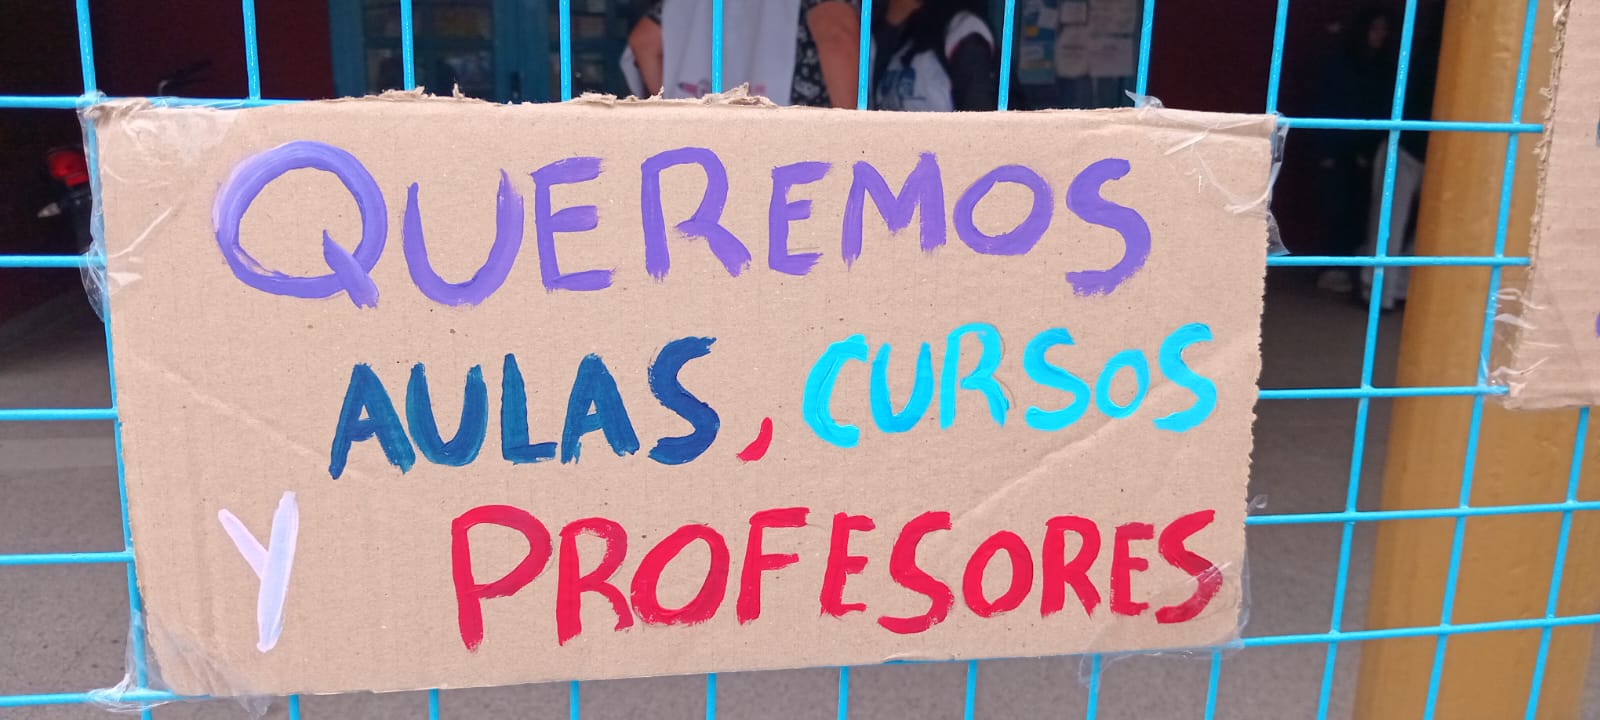 QUEREMOS
AULAS, CURSOS
Y PROFESORES